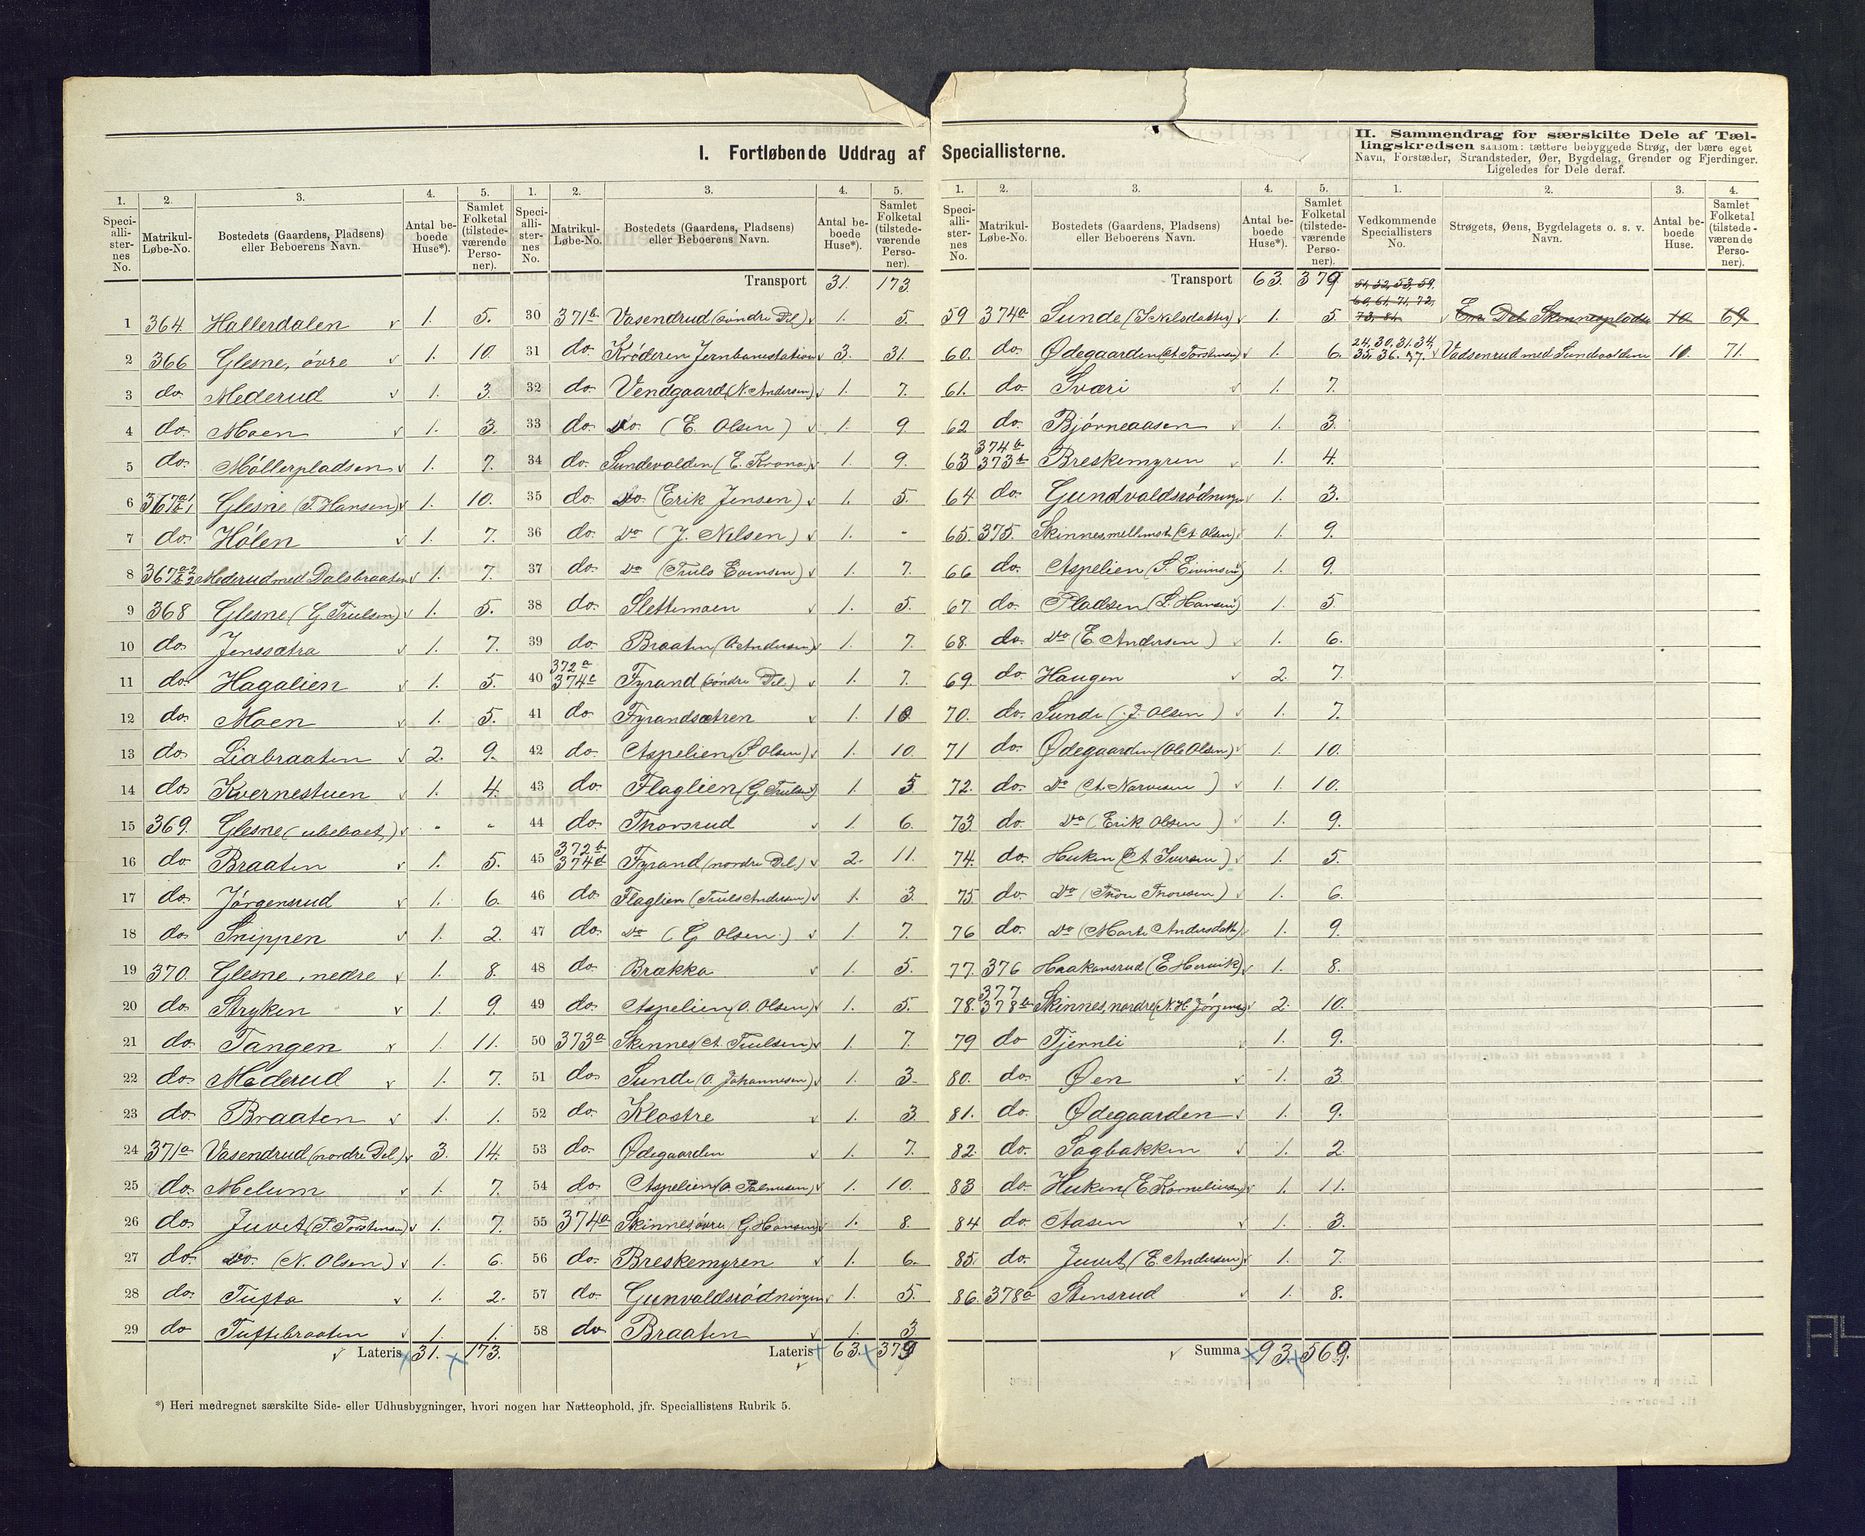 I. Fortløbende Uddrag af Speciallisterne.
1. 2. 3. 4. 5.
Speciallisternes No. Matrikul-Løbe-No. Bostedets (Gaardens, Pladsens) eller Beboerens Navn. Antal beboede Huse*). Samlet Folketal (tilstedeværende Personer).
1 364 Hallerdalen v 1. 5.
2 366 Glesne, øvre v 1. 10.
3 do Mederud v 1. 3.
4 do. Moen v 1. 3.
5 do. Møllerpladsen v 1. 7.
6 367a1 b1 Glesne (T. Hansen) v 1. 10.
7 do. Hólen v 1. 7.
8 367a2 b2 Mederud med Dalsbraaten v 1. 7.
9 368 Glesne (G. Truelsen) v 1. 5.
10 do. Jenssætra v 1. 7.
11 do. Hagalien v 1. 5.
12 do. Moen v 1. 5.
13 do. Liabraaten v 2. 9.
14 do. Kvernestuen v 1. 4.
15 369. Glesne (ubeboet,) v - -
16 do. Braaten v 1. 5.
17 do. Jørgensrud v 1. 6.
18 do. Snippen v 1. 2.
19 370. Glesne, nedre v 1. 8.
20 do. Stryken v 1. 9.
21 do. Tangen v 1. 11.
22 do. Mederud v 1. 7.
23 do. Braaten v 1. 1.
24 371a Vasendrud (nordre Del) v 3. 14.
25 do. Melum v 1. 7.
26 do. Juvet (T. Torstensen) v 1. 7.
27 do. Do. (N. Olsen) v 1. 6.
28 do. Tufta v 1. 2.
29 do Tuftebraaten v 1. 1.
v Lateris x 31. x 173.
1. 2. 3. 4. 5.
Speciallisternes No. Matrikul-Løbe-No. Bostedets (Gaardens, Pladsens) eller Beboerens Navn. Antal beboede Huse*). Samlet Folketal (tilstedeværende Personer).
Transport 31. 173.
30 371b Vasendrud (søndre Del) v 1. 5.
31 do. Krøderen Jernbanestation v 3. 31.
32 do. Vendgaard (N. Andersen) v 1. 7.
33 do. Do. (E. Olsen) v 1. 9.
34 do. Sundevolden (E. Krona) v 1. 9.
35 do. Do. (Erik Jensen) v 1. 5.
36 do. Do (J. Nilsen) v 1. -
37 do. Do (Truls Evensen) v 1. 7.
38 do. Slettemoen v 1. 5.
39 do. Braaten (A. Andersen) v 1. 7.
40 372a 374c Fyrand (søndre Del) v 1. 7.
41 do. Fyrandsætren v 1. 10
42 do. Aspelien (S. Olsen) v 1. 10.
43 do. Flaglien (G. Truelsen) 1. 5
44 do. Thorsrud v 1. 6.
45 372b 374d Fyrand (nordre Del) v 2. 11.
46 do. Flaglien (Truls Andersen) v 1. 3.
47 do. Do (G Olsen.) v 1. 7.
48 do. Brækka v 1. 5.
49 do. Aspelien (O. Olsen) v 1. 5.
50 373a Skinnes (A. Truelsen) v 1. 7.
51 do. Sunde (O. Johannesen) v 1. 3.
52 do. Klostre v 1. 3.
53 do. Ødegaarden v 1. 7.
54 do. Aspelien (O. Palmesen) v 1. 10.
55 374a Skinnes, øvre G. Hansen) v 1. 8.
56 do. Breskemyren v 1. 6.
57 do. Gunvaldsrødningen v 1. 5.
58 do Braaten v 1. 3
Lateris x 63. x 379
v
1. 2. 3. 4. 5.
Speciallisternes No. Matrikul-Løbe-No. Bostedets (Gaardens, Pladsens) eller Beboerens Navn. Antal beboede Huse*). Samlet Folketal (tilstedeværende Personer).
Transport 63. 379
59 374a Sunde (S. Nilsdatter) v 1. 5
60. do. Ødegaarden (A. Torstensen) v 1. 6.
61. do. Sværi v 1. 7.
62 do. Bjørneaasen v 1. 3.
63 374b 373b Breskemyren v 1. 4.
64 do. Gundvaldsrødningen 1. 3.
65. 375. Skinnes, mellemst (A. Olsen) v 1. 9.
66 do. Aspelien (S. Eivinsen) 1. 9.
67. do. Pladsen (L. Hansen) 1. 5
68. do. Do (E. Andersen) v 1. 6.
69. do. Haugen v 2. 7.
70. do. Sunde (J. Olsen) v 1. 7.
71 do. Ødegaarden (Ole Olsen) v 1. 10.
72. do. Do (A. Narvesen) v 1. 10.
73. do. Do (Erik Olsen) v 1. 9.
74. do. Huken (A. Iversen) v 1. 5.
75 do. Do (Thor Thoresen) v 1. 6.
76 do. Do (Marte Andersdatt.) v 1. 9.
77. 376 Haakonsrud (E. Hervik) v 1. 8.
78. 377 378b Skinnes, nordre (N. H. Jørgensen) v 2. 10.
79 do Tjernli v 1. 9.
80. do. Øen v 1. 3.
81. do. Ødegaarden v 1. 9.
82. do. Sagbakken v 1. 2.
83 do. Huken (E. Korneliusen) v 1. 11.
84 do. Aasen v 1. 3.
85 do. Juvet (E. Andersen) v 1. 7.
86. 378a Stensrud v 1. 8.
v Summa x 93. x 569.
II. Sammendrag for særskilte Dele af Tællingskredsen saasom: tættere bebyggede Strøg, der bære eget
Navn, Forstæder, Strandsteder, Øer, Bygdelag, Grender og Fjerdinger.
Ligeledes for Dele deraf.
1. 2. 3. 4.
Vedkommende Speciallisters No. Strøgets, Øens, Bygdelagets o. s. v. Navn. Antal beboede Huse. Samlet Folketal (tilstedeværende Personer).
51, 52, 53, 59. 60, 61, 71, 72, 73, 81. v En Del Skinnespladse 10 69
24, 30, 31, 34, 35, 36, 37. v Vadsenrud med Sundvoldene 10. 71.
*) Heri medregnet særskilte Side- eller Udhusbygninger, hvori nogen har Natteophold, jfr. Speciallistens Rubrik 5.
A4